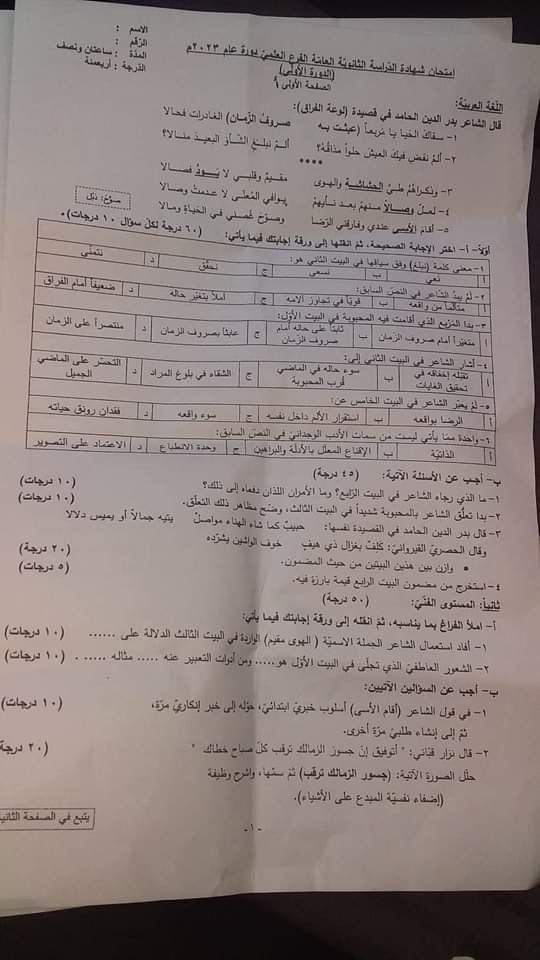 امتحان شهادة الدراسة الثانوية العامة الفرع العلمي دورة عام ٢٠٢٣م
(الدورة الأولى)
الصفحة الأولى
الاسم :
الرقم :
المدة : ساعتان ونصف
الدرجة : أربعمئة
اللغة العربية:
قال الشاعر بدر الدين الحامد في قصيدة (لوعة الفراق):
١- سقاك الحيا يا مربعاً (عبثت به صروف الزمان) الغادرات فحالا
٢- ألم نقض فيك العيش حلواً مذاقه؟ ألم نبلغ الشأو البعيد منالا؟
****
٣- وذكراهم طيّ الحشاشة والهوى مقيم وقلبي لا يود فصالا
٤- لعل وصالاً منهم بعد نأيهم يوافي المعنّى لا عدمت وصالا
٥- أقام الأسى عندي وفارقني الرضا وصوّح غصني في الحياة ومالا
صوّح: ذبل
أولاً- أ- اختر الإجابة الصحيحة، ثم انقلها إلى ورقة إجابتك فيما يأتي: (٦٠ درجة لكل سؤال ١٠ درجات).
١- معنى كلمة (نبلغ) وفق سياقها في البيت الثاني هو:
أ نعي ب نسعى ج نحقق د نتمنى
٢- لم يبدُ الشاعر في النص السابق:
أ متألماً من واقعه ب قوياً في تجاوز آلامه ج آملاً بتغير حاله د ضعيفاً أمام الفراق
٣- بدا المربع الذي أقامت فيه المحبوبة في البيت الأول:
أ متغيراً أمام صروف الزمان ب ثابتاً على حاله أمام صروف الزمان ج عابثاً بصروف الزمان د منتصراً على الزمان
٤- أشار الشاعر في البيت الثاني إلى:
أ تقبله إخفاقه في تحقيق الغايات ب سوء حاله في الماضي قرب المحبوبة ج الشقاء في بلوغ المراد د التحسر على الماضي الجميل
٥- لم يعبر الشاعر في البيت الخامس عن:
أ الرضا بواقعه ب استقرار الألم داخل نفسه ج سوء واقعه د فقدان رونق حياته
٦- واحدة مما يأتي ليست من سمات الأدب الوجداني في النص السابق:
أ الذاتية ب الإقناع المعلل بالأدلة والبراهين ج وحدة الانطباع د الاعتماد على التصوير
ب- أجب عن الأسئلة الآتية: (٤٥ درجة)
١- ما الذي رجاه الشاعر في البيت الرابع؟ وما الأمران اللذان دفعاه إلى ذلك؟ (١٠ درجات)
٢- بدا تعلق الشاعر بالمحبوبة شديداً في البيت الثالث، وضّح مظاهر ذلك التعلق. (١٠ درجات)
٣- قال بدر الدين الحامد في القصيدة نفسها: حبيب كما شاء الهناء مواصل يتيه جمالاً أو يميس دلالا
وقال الحصري القيرواني: كَلِفٌ بغزال ذي هيفٍ خوف الواشين يشرّده
• وازن بين هذين البيتين من حيث المضمون. (٢٠ درجة)
٤- استخرج من مضمون البيت الرابع قيمة بارزة فيه. (٥ درجات)
ثانياً: المستوى الفني: (٥٠ درجة)
أ- املأ الفراغ بما يناسبه، ثم انقله إلى ورقة إجابتك فيما يأتي:
١- أفاد استعمال الشاعر الجملة الاسمية ( الهوى مقيم) الواردة في البيت الثالث الدلالة على ...... (١٠ درجات)
٢- الشعور العاطفي الذي تجلى في البيت الأول هو..... ومن أدوات التعبير عنه ..... مثاله ..... . (١٠ درجات)
ب- أجب عن السؤالين الآتيين:
١- في قول الشاعر (أقام الأسى) أسلوب خبري ابتدائي، حوّله إلى خبر إنكاري مرة، ثم إلى إنشاء طلبي مرة أخرى. (١٠ درجات)
٢- قال نزار قباني: " أتوفيق إنّ جسور الزمالك ترقب كلّ صباح خطاك "
حلل الصورة الآتية: (جسور الزمالك ترقب) ثم سمّها، واشرح وظيفة (إضفاء نفسية المبدع على الأشياء). (٢٠ درجة)
يتبع في الصفحة الثانية
- ١ -